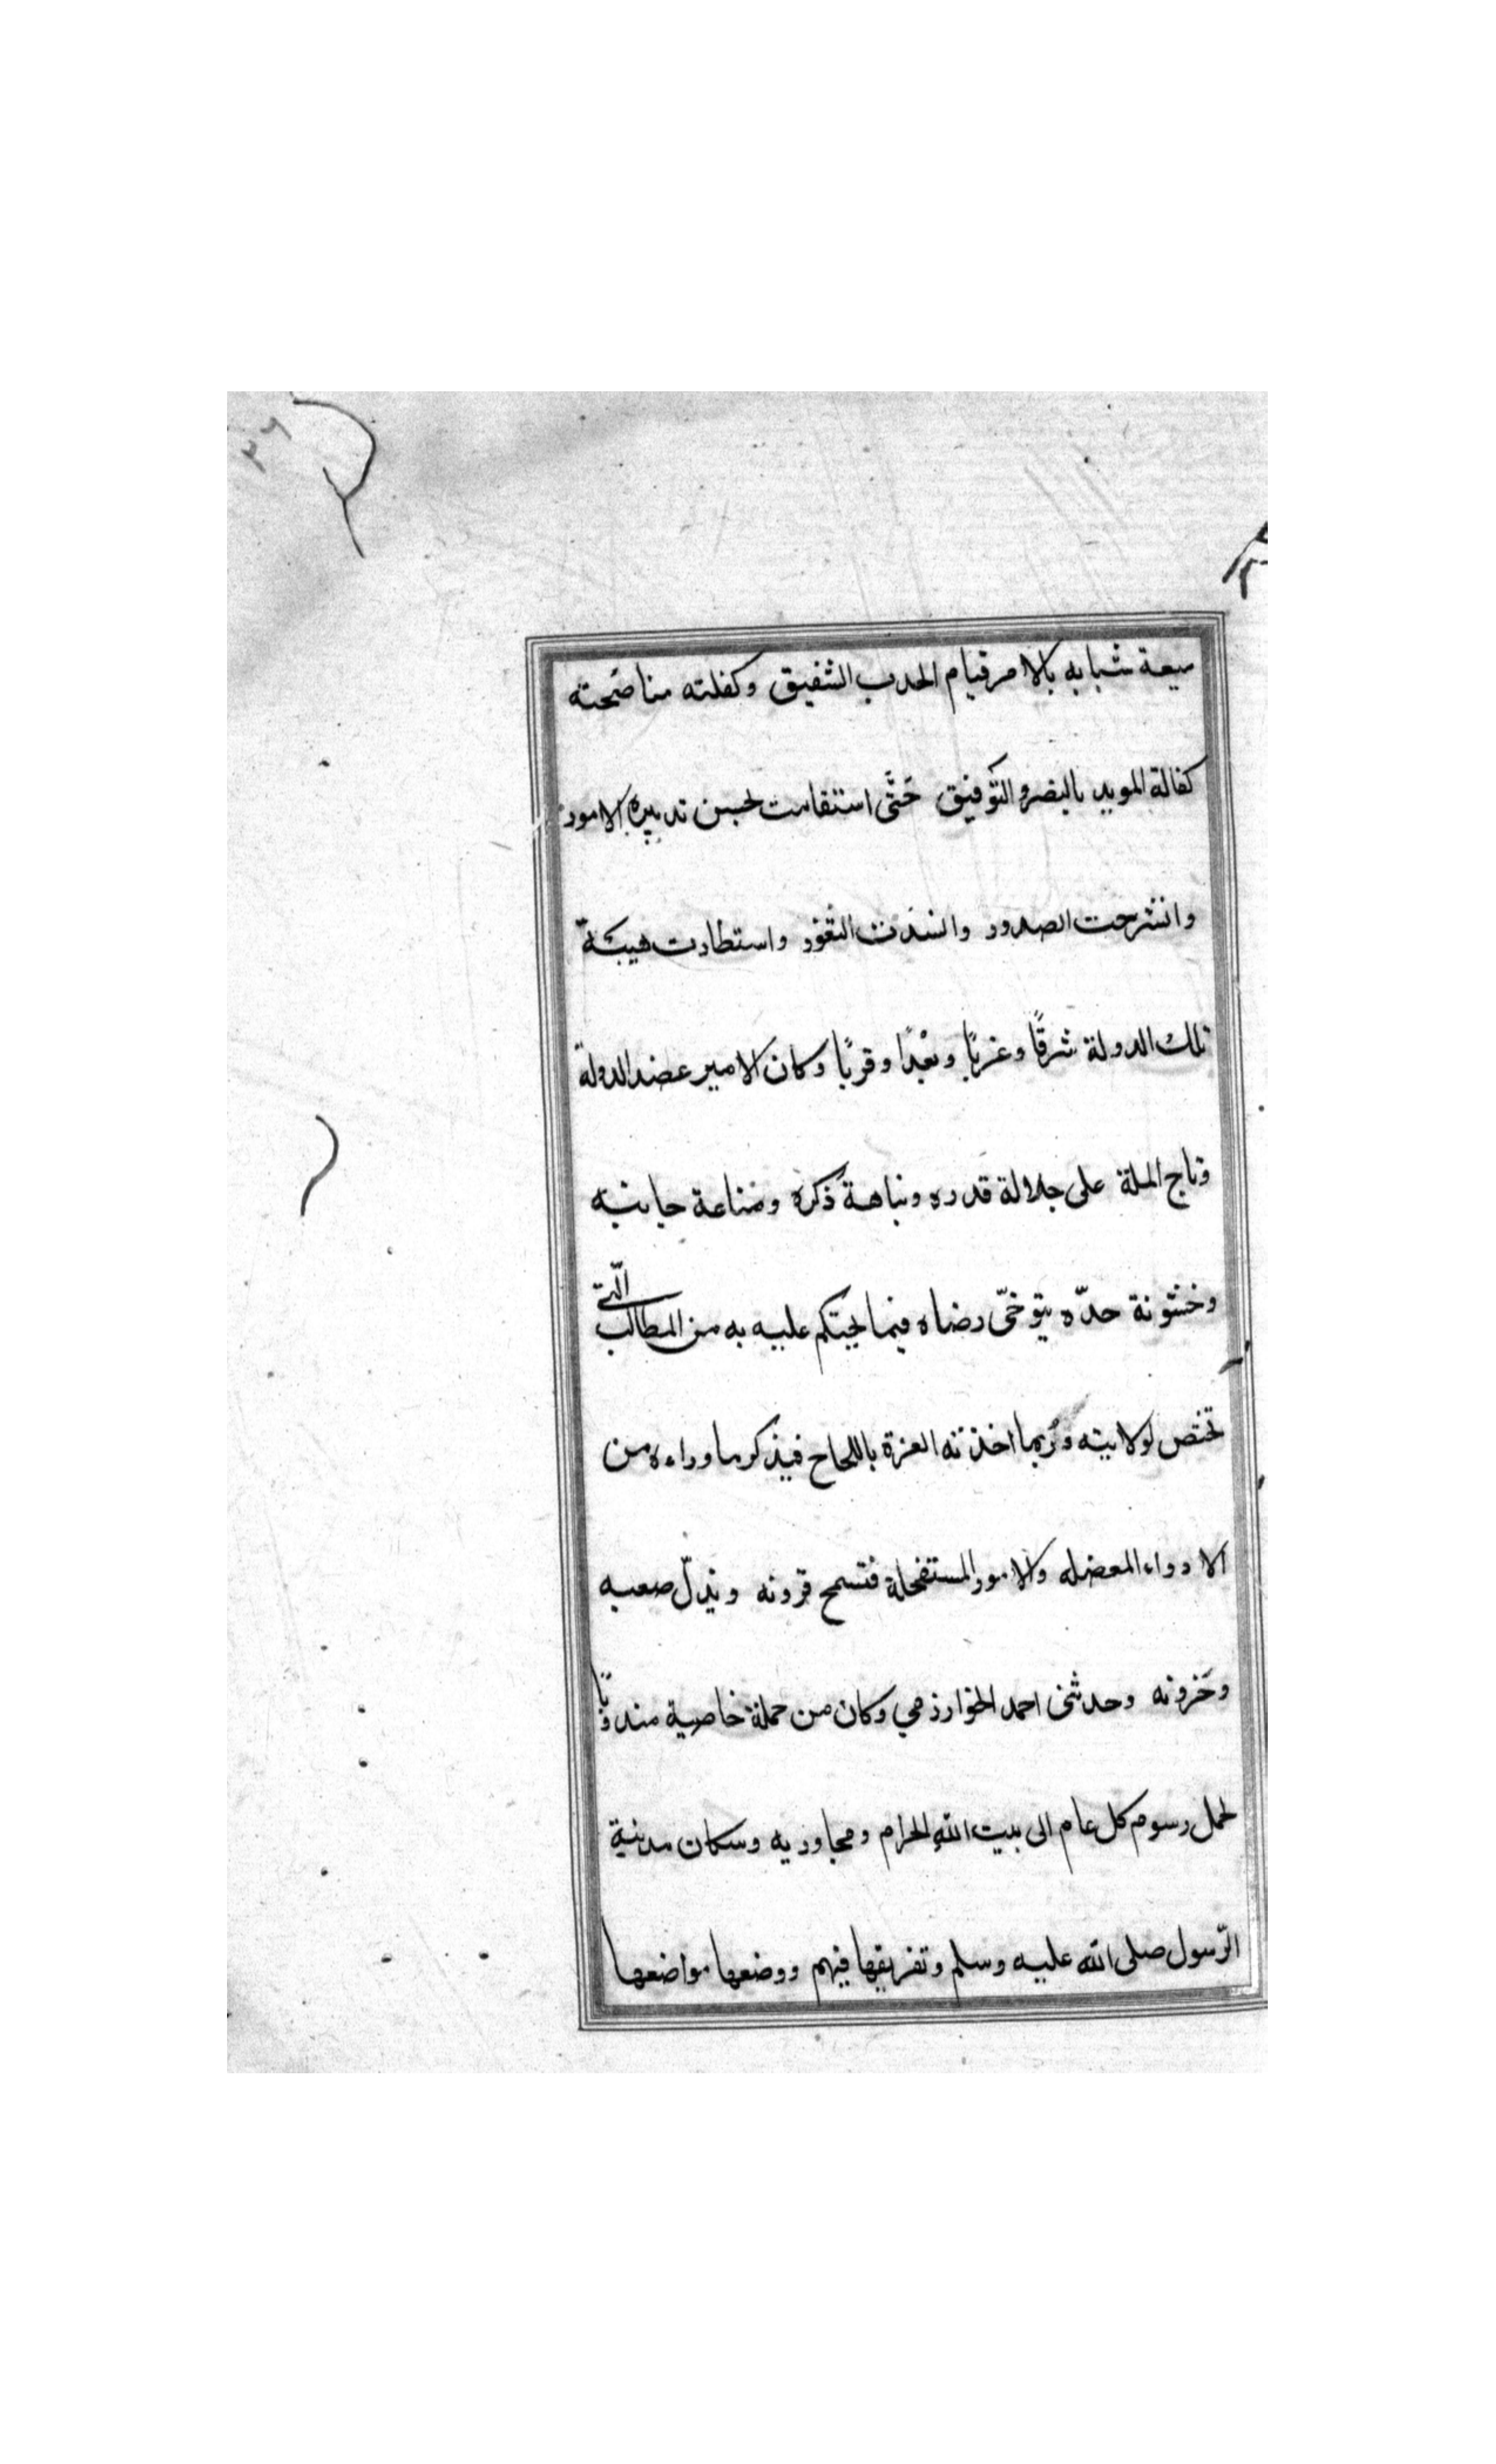 ٣٦
ميعة شبابه بالامر قيام الحدب الشفيق وكفلته مناصَحته
كفالة المويد بالنصر والتّوفيق حَتَّى استقامت لحسن تدبيره الامور
وانشرحت الصدور وانسَدَت الثغور واستطارت هيبَة
تلك الدولة شرقًا وغربًا وبُعْدًا وقربًا وكان الامير عضد الدولة
وتاج الملة على جلالة قدره ونباهة ذكره ومناعة جانبه
وخشونة حدّه يتوخّى رضاه فيما يحتكم عليه به من المطالب الّتي
تختص لولايته ورُبما اخذته العزة باللحاح فيذكر ما وراءه من
الادواء المعضله والامور المستفحلة فتسمح قرونه ويذلّ صعبه
وحَزونه وحدثنى احمد الخوارزمي وكان من حملة خاصية مندوبًا
لحمل رسوم كل عام الى بيت الله الحرام ومجاوريه وسكان مدينة
الرّسول صلى الله عليه وسلم وتفريقها فيهم ووضعها مواضعها